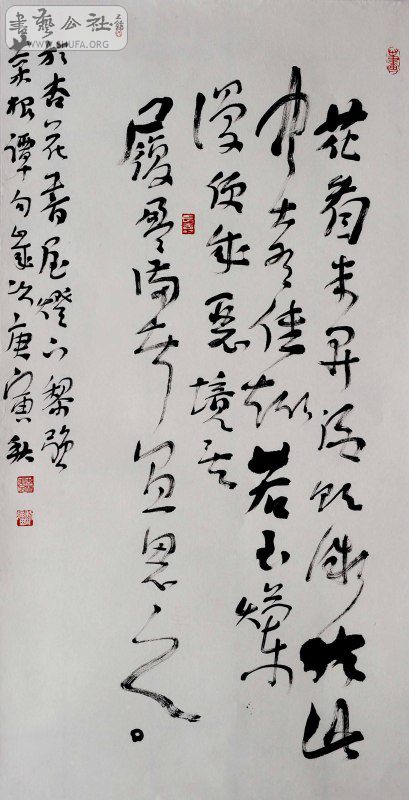 花看半開酒飲微醉此
中大有佳趣若至爛
漫便成惡境矣
履盈滿者宜思之。
於杏花書屋燈下黎強
菜根譚句歲次庚寅秋
書藝公社
WWW.SHUFA.ORG